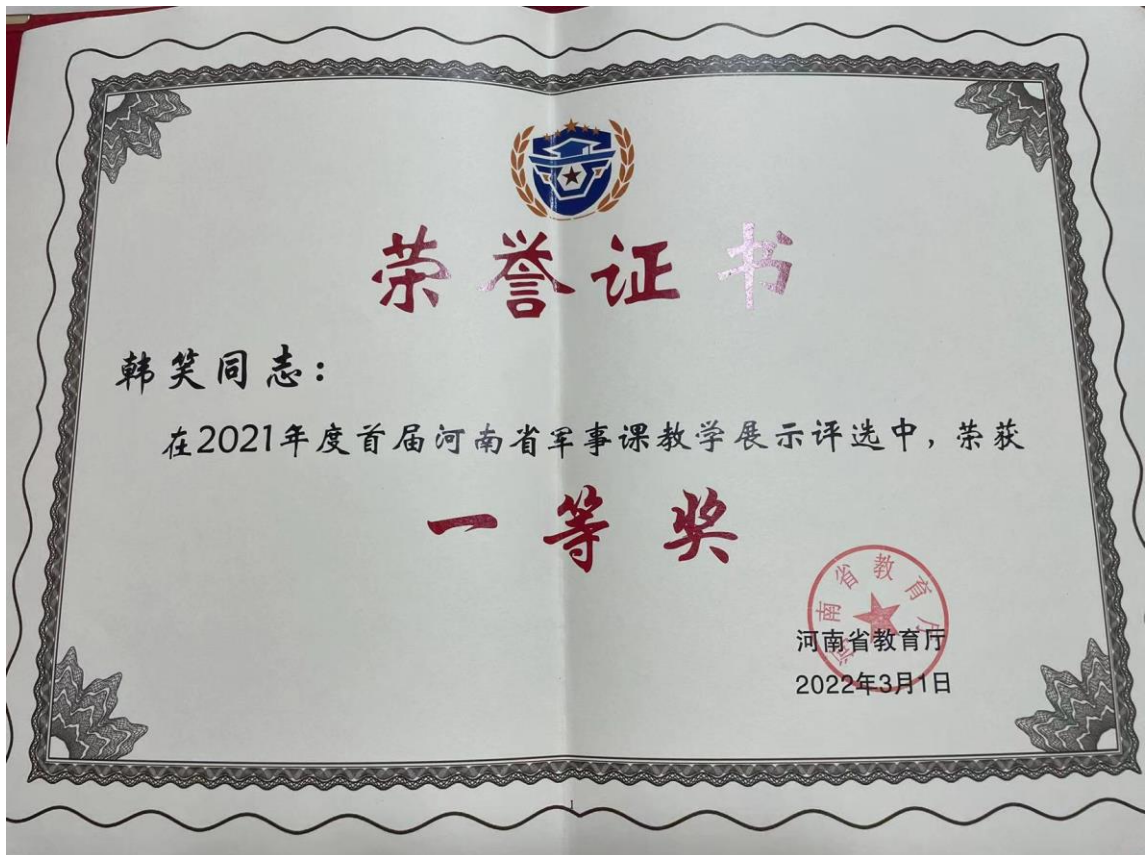 荣誉证书
韩笑同志：
在2021年度首届河南省军事课教学展示评选中，荣获
一等奖
河南省教育厅
河南省教育厅
2022年3月1日